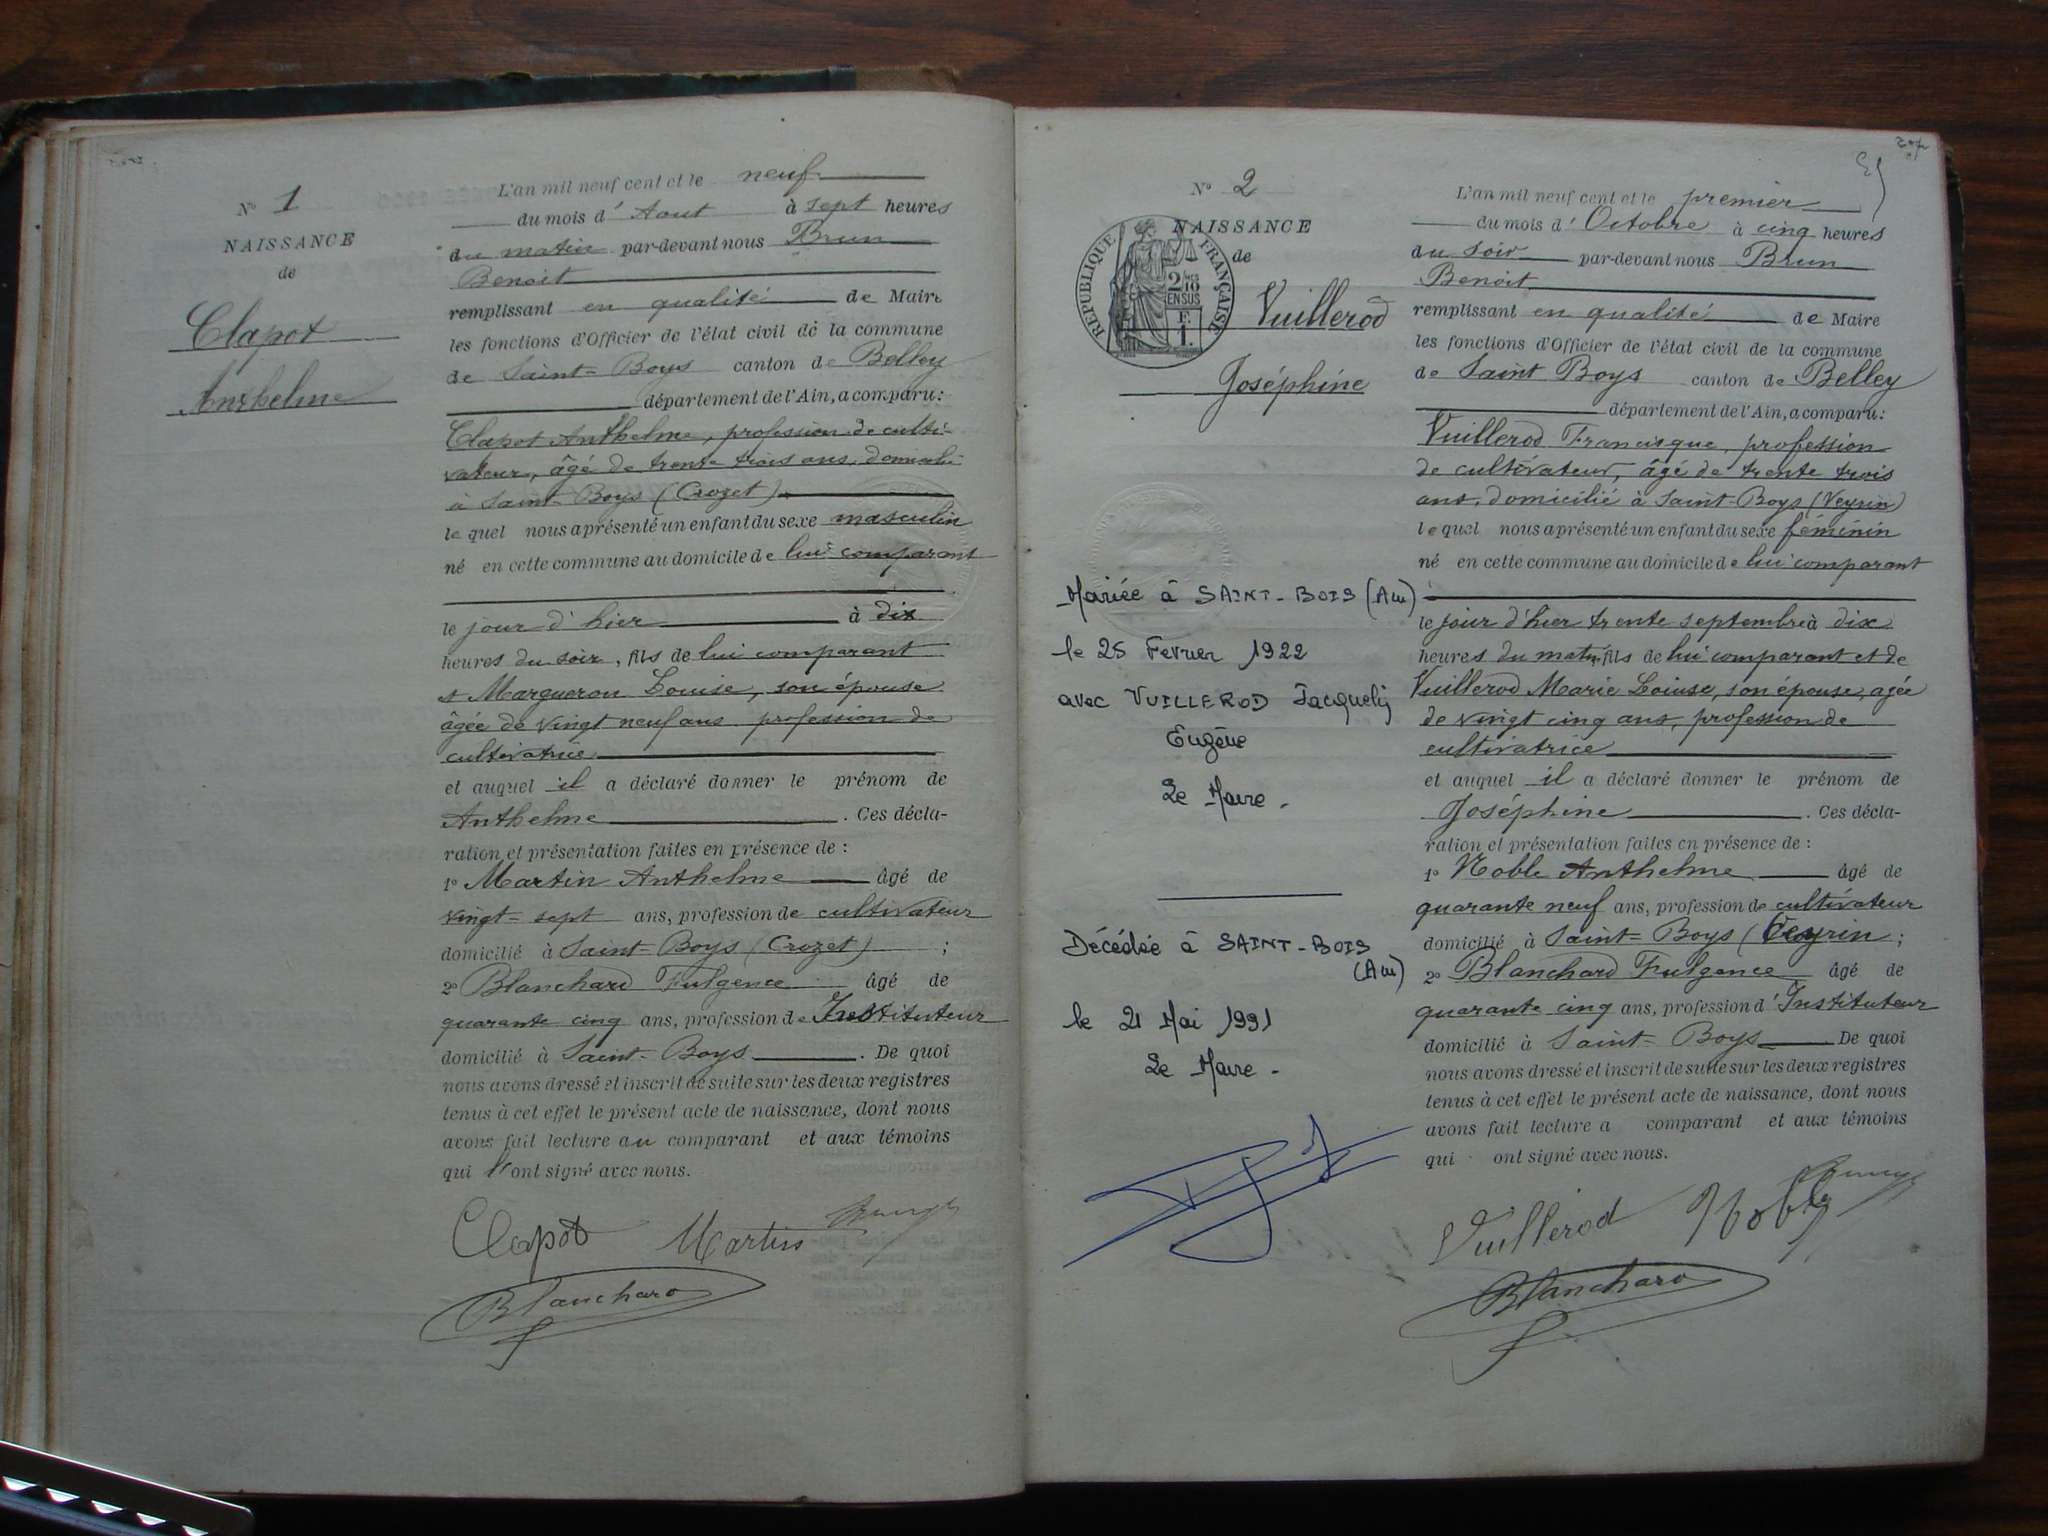 N° 1
NAISSANCE
de
Clapot
Anthelme
L'an mil neuf cent et le neuf
du mois d'Aout à sept heures
du matin par-devant nous Brun
Benoit
remplissant en qualité de Maire
les fonctions d'Officier de l'état civil de la commune
de Saint-Boys canton de Belley
département de l'Ain, a comparu:
Clapot Anthelme, profession de culti-
vateur, âgé de trente trois ans, domicilié
à Saint-Boys (Crozet)
le quel nous a présenté un enfant du sexe masculin
né en cette commune au domicile de lui comparant
le jour d'hier à dix
heures du soir, fils de lui comparant
et Margueron Louise, son épouse
âgée de vingt neuf ans profession de
cultivatrice
et auquel il a déclaré donner le prénom de
Anthelme. Ces décla-
ration et présentation faites en présence de :
1° Martin Anthelme âgé de
vingt-sept ans, profession de cultivateur
domicilié à Saint-Boys (Crozet) ;
2° Blanchard Fulgence âgé de
quarante cinq ans, profession de Instituteur
domicilié à Saint-Boys. De quoi
nous avons dressé et inscrit de suite sur les deux registres
tenus à cet effet le présent acte de naissance, dont nous
avons fait lecture au comparant et aux témoins
qui l'ont signé avec nous.
Clapot Martin
Blanchard
N° 2
NAISSANCE
de
RÉPUBLIQUE FRANÇAISE
2/10
EN SUS
F.
1.
Vuillerod
Joséphine
Mariée à SAINT-BOIS (Ain)
le 25 Février 1922
avec VUILLEROD Jacquelin
Eugène
Le Maire.
Décédée à SAINT-BOIS
(Ain)
le 21 Mai 1991
Le Maire.
L'an mil neuf cent et le premier
du mois d'Octobre à cinq heures
du soir par-devant nous Brun
Benoit
remplissant en qualité de Maire
les fonctions d'Officier de l'état civil de la commune
de Saint Boys canton de Belley
département de l'Ain, a comparu:
Vuillerod Francisque, profession
de cultivateur, âgé de trente trois
ans, domicilié à Saint-Boys (Veyrin)
le quel nous a présenté un enfant du sexe féminin
né en cette commune au domicile de lui comparant
le jour d'hier trente septembre à dix
heures du matin fils de lui comparant et de
Vuillerod Marie Loiuse, son épouse, agée
de vingt cinq ans, profession de
cultivatrice
et auquel il a déclaré donner le prénom de
Joséphine. Ces décla-
ration et présentation faites en présence de :
1° Noble Anthelme âgé de
quarante neuf ans, profession de cultivateur
domicilié à Saint-Boys (Veyrin ;
2° Blanchard Fulgence âgé de
quarante cinq ans, profession d'Instituteur
domicilié à Saint-Boys De quoi
nous avons dressé et inscrit de suite sur les deux registres
tenus à cet effet le présent acte de naissance, dont nous
avons fait lecture a comparant et aux témoins
qui ont signé avec nous.
Vuillerod Noble
Blanchard